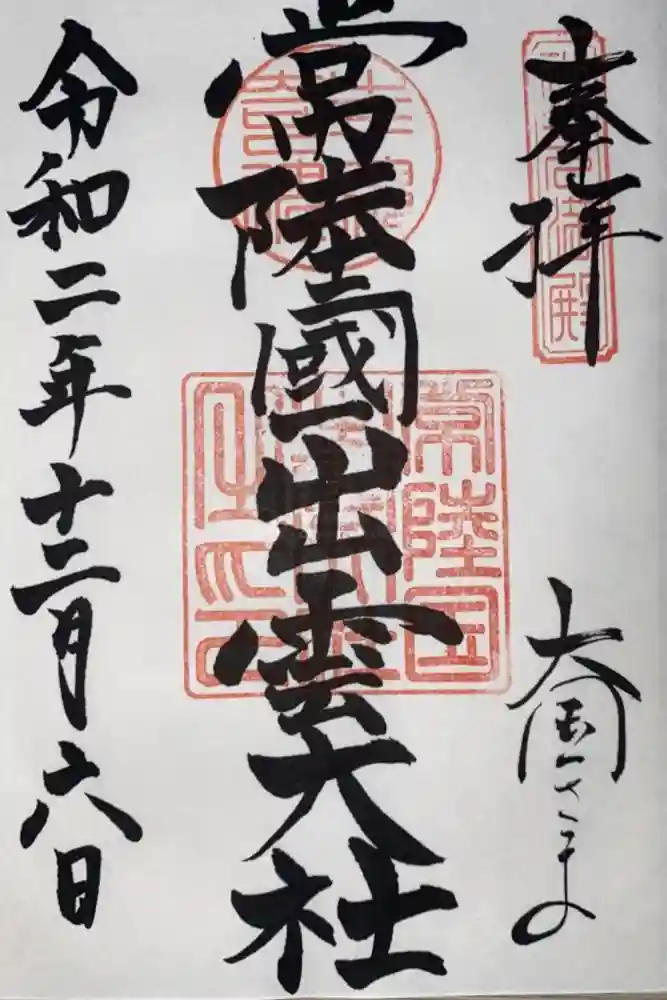 奉拝
大国さま
常陸國出雲大社
令和二年十二月六日
常陸国